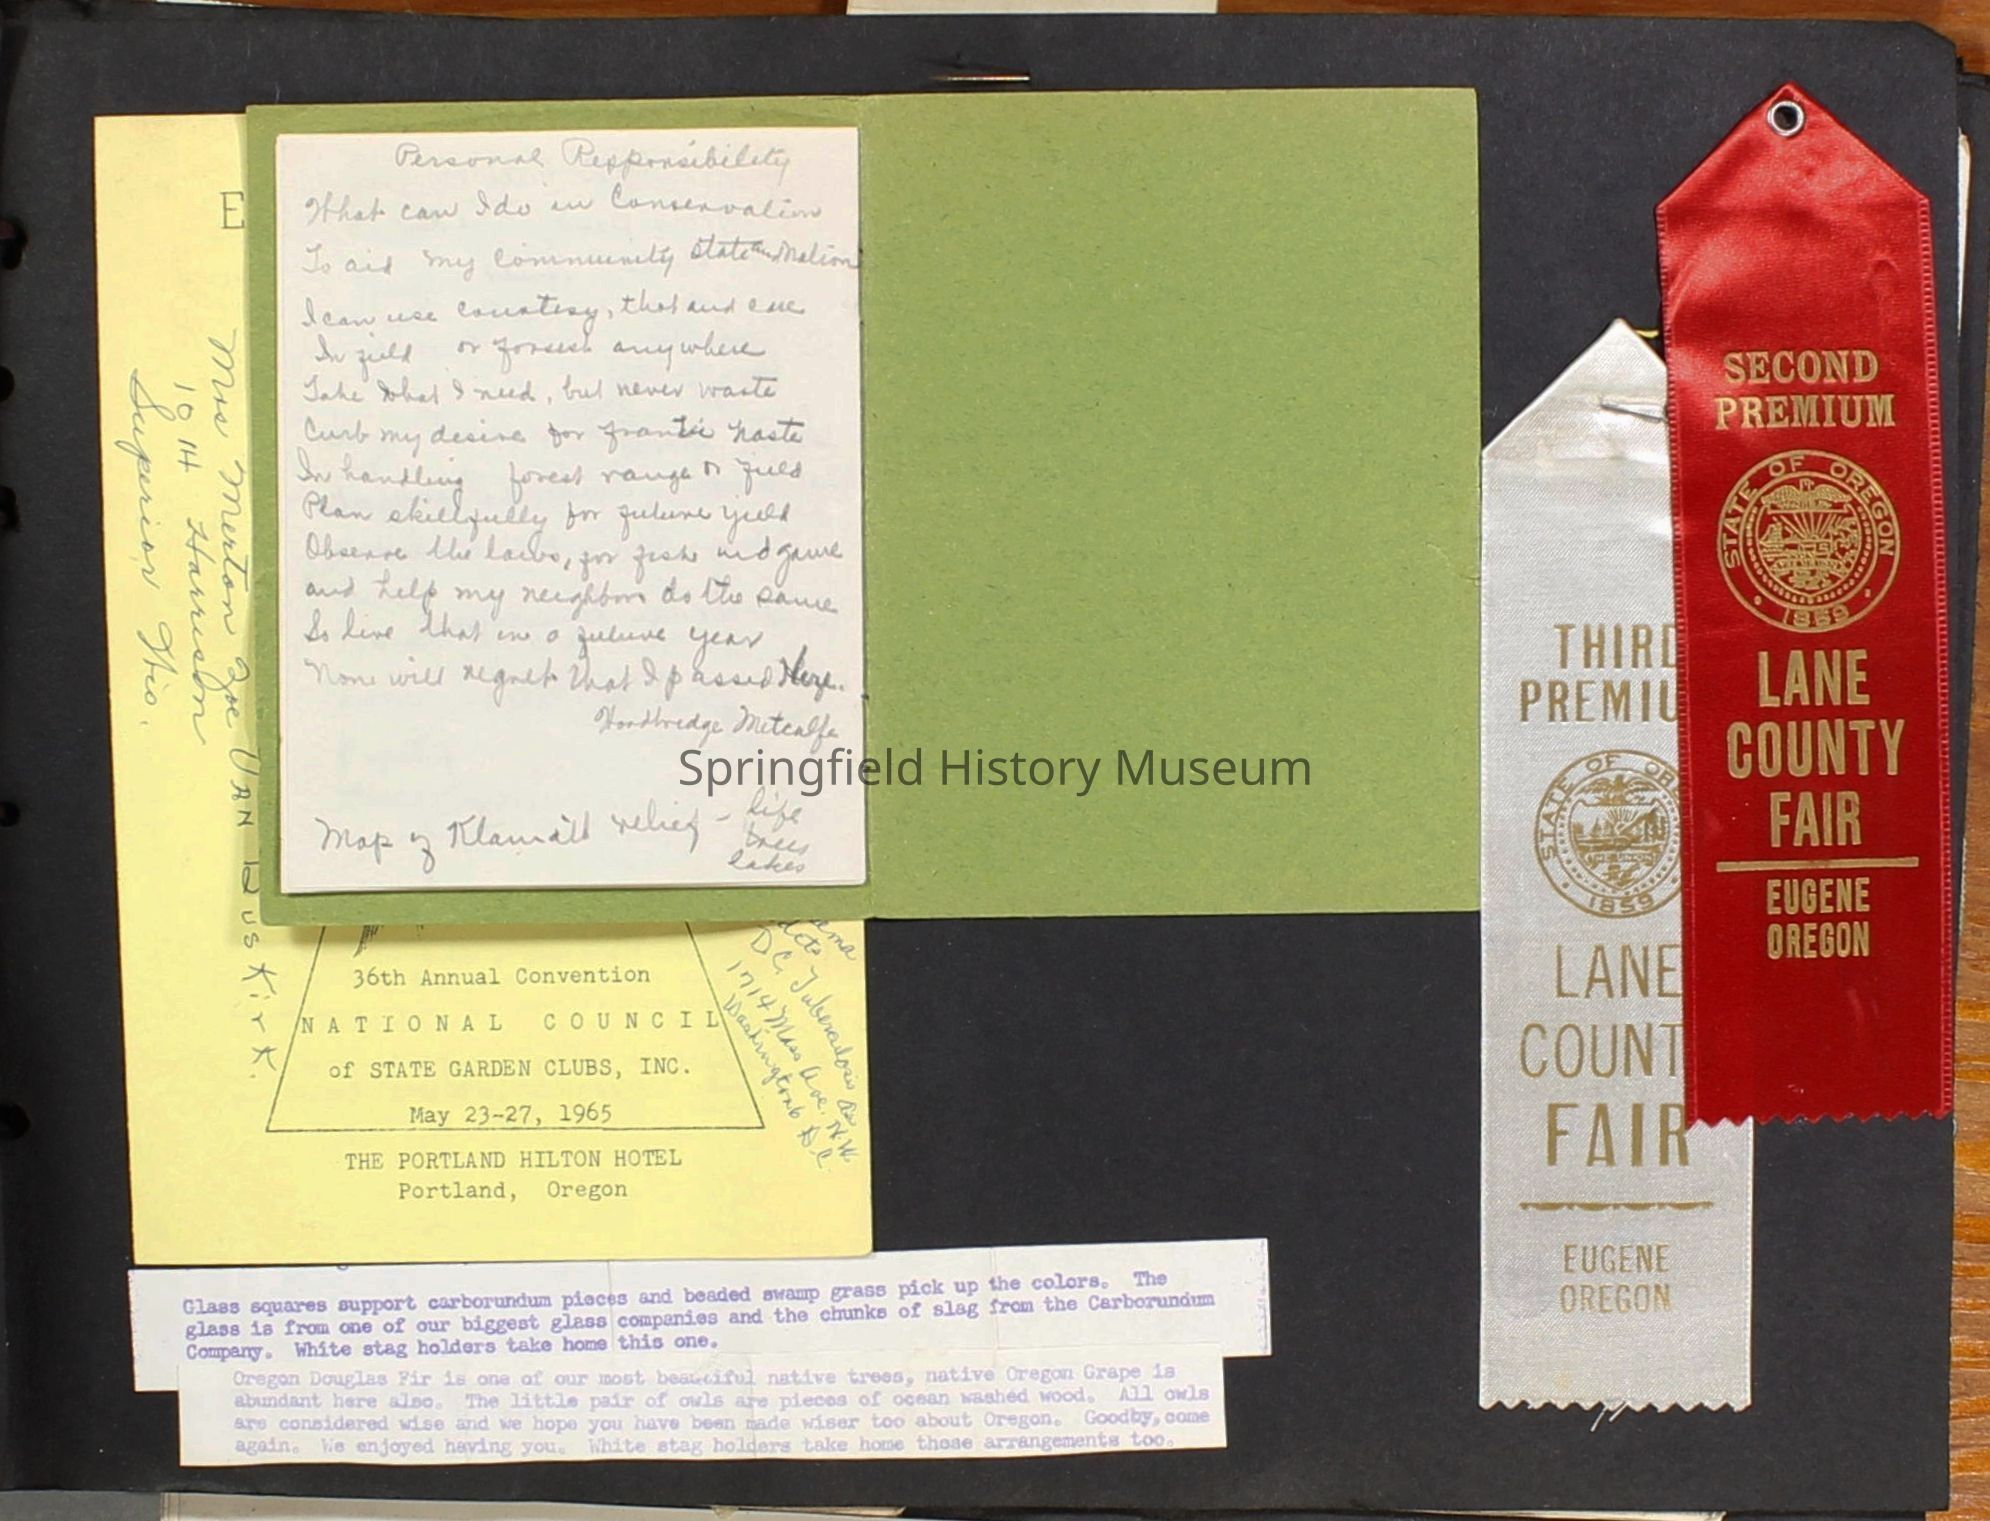 Personal Responsibility
What can I do in Conservation
To aid my Community State and Nation
I can use courtesy, thot and care
In field or forsest anywhere
Take what I need, but never waste
Curb my desire for frantic haste
In handling forest range or field
Plan skillfully for future yield
Observe the laws, for fish and game
and help my neighbors do the same
So live that in a future year
None will regret that I passed Here.
Woodbridge Metcalfe
Map of Klamath relief - life
trees
lakes
E
Mrs Merton Zoe Van Buskirk.
1014 Harrison
Superior, Wis.
36th Annual Convention
NATIONAL COUNCIL
of STATE GARDEN CLUBS, INC.
May 23-27, 1965
THE PORTLAND HILTON HOTEL
Portland, Oregon
D.C. Tuberculosis
1714 Mass Ave. N.W.
Washington D.C.
Glass squares support carborundum pieces and beaded swamp grass pick up the colors. The
glass is from one of our biggest glass companies and the chunks of slag from the Carborundum
Company. White stag holders take home this one.
Oregon Douglas Fir is one of our most beautiful native trees, native Oregon Grape is
abundant here also. The little pair of owls are pieces of ocean washed wood. All owls
are considered wise and we hope you have been made wiser too about Oregon. Goodby, come
again. We enjoyed having you. White stag holders take home these arrangements too.
THIRD
PREMIU
STATE OF OR
1859
LANE
COUNT
FAIR
EUGENE
OREGON
SECOND
PREMIUM
STATE OF OREGON
1859
LANE
COUNTY
FAIR
EUGENE
OREGON
Springfield History Museum